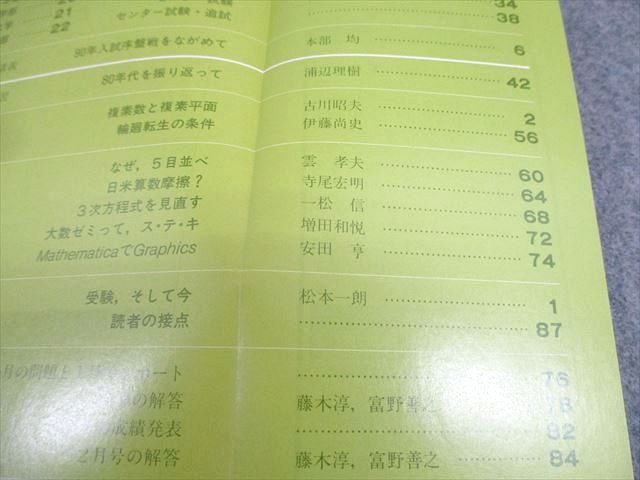 34
21
センター試験・追試
38
22
90年入試序盤戦をながめて 本部 均 6
80年代を振り返って 浦辺理樹 42
複素数と複素平面 古川昭夫 2
輪廻転生の条件 伊藤尚史 56
なぜ,5目並べ 雲 孝夫 60
日米算数摩擦? 寺尾宏明 64
3次方程式を見直す 一松 信 68
大数ゼミって,ス・テ・キ 増田和悦 72
MathematicaでGraphics 安田 亨 74
受験,そして今 松本一朗 1
読者の接点 87
月の問題と ポート 76
の解答 藤木淳,富野善之 78
成績発表 82
2月号の解答 藤木淳,富野善之 84